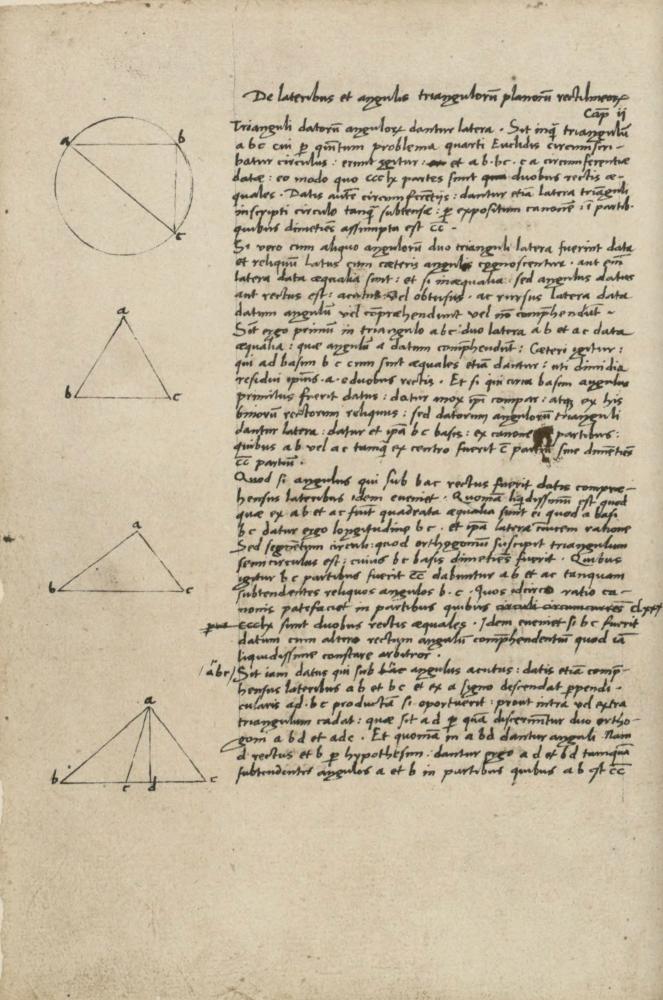 De lateribus et angulis triangulorũ planorũ rectilineorꝝ
Cap̃ ij
Trianguli datorũ angulorꝝ dantur latera . Sit inꝗ triangulũ
a b c cui p quintum problema quarti Euclidis circumscri-
batur circulus : erunt igitur et a b . bc . c a circumferentiæ
datæ : eo modo quo ccclx partes sunt duobus rectis æ-
quales . Datis autẽ circumferẽtijs : dantur etiã latera triãguli
inscripti circulo tanq̃ subtensæ : p expositum canonẽ : ĩ partib.
quibus dimetiẽs assumpta est c͠c .
Si vero cum aliquo angulorũ duo trianguli latera fuerint data
et reliquũ latus cum cæteris angulis cognoscentur . aut em̃
latera data æqualia sunt : et si inæqualia : sed angulus datus
aut rectus est : acutus vel obtusus . ac rursus latera data
datum angulũ vel cõprehendunt vel nõ comp̃hendunt .
Sit ergo primũ in triangulo a b c duo latera a b et a c data
æqualia : quæ angulũ a datum comp̃hendũt : Cæteri igitur :
qui ad basim b c cum sint æquales etiã dantur : uti dimidia
residui ipsius . a . e duobus rectis . Et si qui circa basim angulus
primitus fuerit datus : datur mox ip̃i compar : atq; ex his
binorũ rectorum reliquus : sed datorum angulorũ trianguli
dantur latera : datur et ip̃a b c basis : ex canone partibus :
quibus a b vel a c tamq̃ ex centro fuerit c̃ partiũ sive dimetiẽs
c͠c partiũ .
Quod si angulus qui sub b a c rectus fuerit datis compræ-
hensus lateribus idem eveniet . Quoniã liqdissimũ est quod
quæ ex a b et a c fiũt quadrata æqualia sunt ei quod a basi
b c datur ergo longitudine b c . et ip̃a latera invicem ratione
Sed segmẽtum circuli : quod orthogoniũ suscipit triangulum
semicirculus est : cuius b c basis dimetiẽs fuerit . Quibus
igitur b c partibus fuerit c͠c dabuntur a b et a c tanquam
subtendentes reliquos angulos b . c . Quos idcirco ratio ca-
nonis patefaciet in partibus quibus circuli circumcurrẽs clxxx
ccclx sunt duobus rectis æquales . Idem eveniet si b c fuerit
datum cum altero rectum angulũ comp̃hendentiũ quod iã
liquidissime constare arbitror .
/ abc / Sit iam datus qui sub b a c angulus acutus : datis etiã comp̃-
hensus lateribus a b et b c et ex a signo descendat ꝑpendi-
cularis ad . b c productã si oportuerit : prout intra vel extra
triangulum cadat : quæ sit a d p quã discernũtur duo ortho-
goni a b d et a d c . Et quoniã in a b d dantur anguli . Nam
d rectus et b p hypothesim : dantur ergo a d et b d tamquã
subtendentes angulos a et b in partibus quibus a b est c͠c
a
b
c
a
b
c
a
b
c
a
b
c
d
c